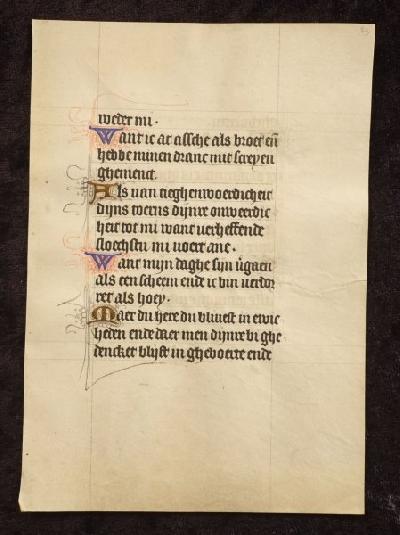 weder mi.
Want ic at assche als broet en̄
hebbe minen dranc mit screyen
ghemenct.
Als van tieghenwoerdicheit
dijns toerns dijnre onweerdic
heit tot mi want verheffende
stoechstu mi voert ane.
Want mijn daghe sijn v̄gaen
als een scheem ende ic bin verdor
ret als hoey.
Maer du here du bliuest in ewic
heden ende daer men dijnre bi ghe
dencket blijft in gheboerte ende